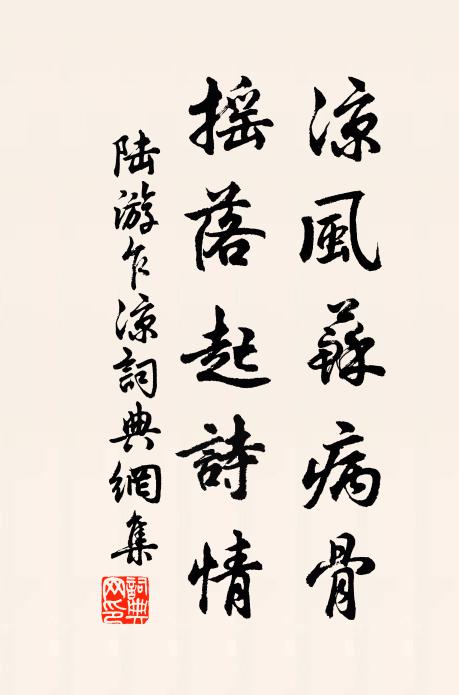 涼風蘇病骨
摇落起詩情
陸游乍涼詞典網集
詞典
网印